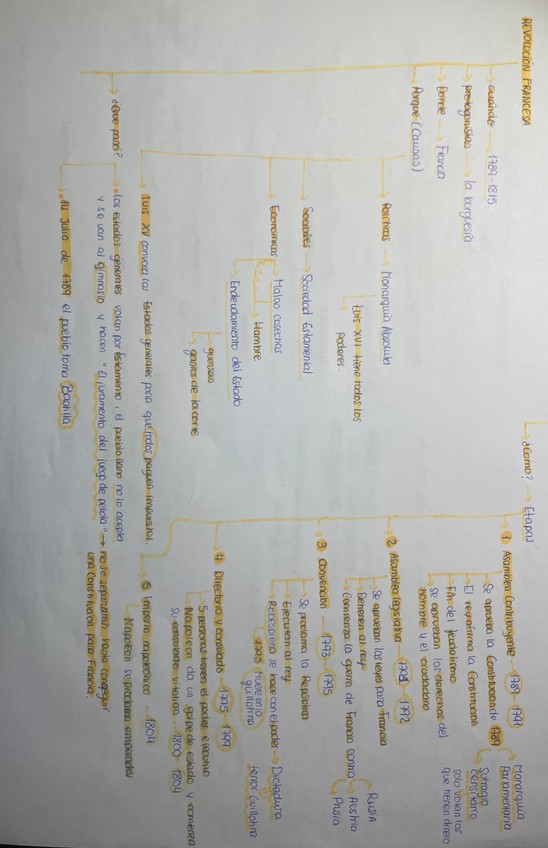 REVOLUCIÓN FRANCESA
Cuándo → 1789-1815
protagonistas → la burguesía
Dónde → Francia
Porqué (Causas)
Políticas → Monarquía Absoluta
Luis XVI tiene todos los
poderes.
Sociales → Sociedad Estamental
Económicas → Malas cosechas
Hambre
Endeudamiento del Estado
guerras
gastos de la corte
Luis XV convoca los Estados generales para que todos paguen impuestos.
¿Qué pasó? → Los estados generales votan por Estamento, el pueblo llano no lo acepta
y se van al gimnasio y hacen "El juramento del juego de pelota" → no se separarán hasta conseguir
una Constitución para Francia.
14 Julio de 1789 el pueblo toma Bastilla
¿Cómo? → Etapas
1 Asamblea Contribuyente - 1789 1791
Se aprueba la Constitución de 1789
Monarquía
Parlamentaria
El rey afirma la Constitución
Sufragio
censitario
solo votan los
que tienen dinero
Fin del feudalismo
Se aprueban los derechos del
hombre y el ciudadano
2 Asamblea legislativa - 1791 - 1792
Se aprueban las leyes para Francia
Detienen al rey
Comienza la guerra de Francia contra
Rusia
Austria
Prusia
3 Convención - 1793 - 1795
Se proclama la República
Ejecutan al rey
Robespierre se hace con el poder → Dictadura
1795 Muere en la
guillotina
terror Guillotina
4 Directorio y consulado - 1795 - 1799
5 personas tienen el poder ejecutivo
Napoleón da un golpe de estado y comienza
su consulado vitalicio - 1800 - 1804
5 Imperio napoleónico - 1804
Napoleón se proclama emperador